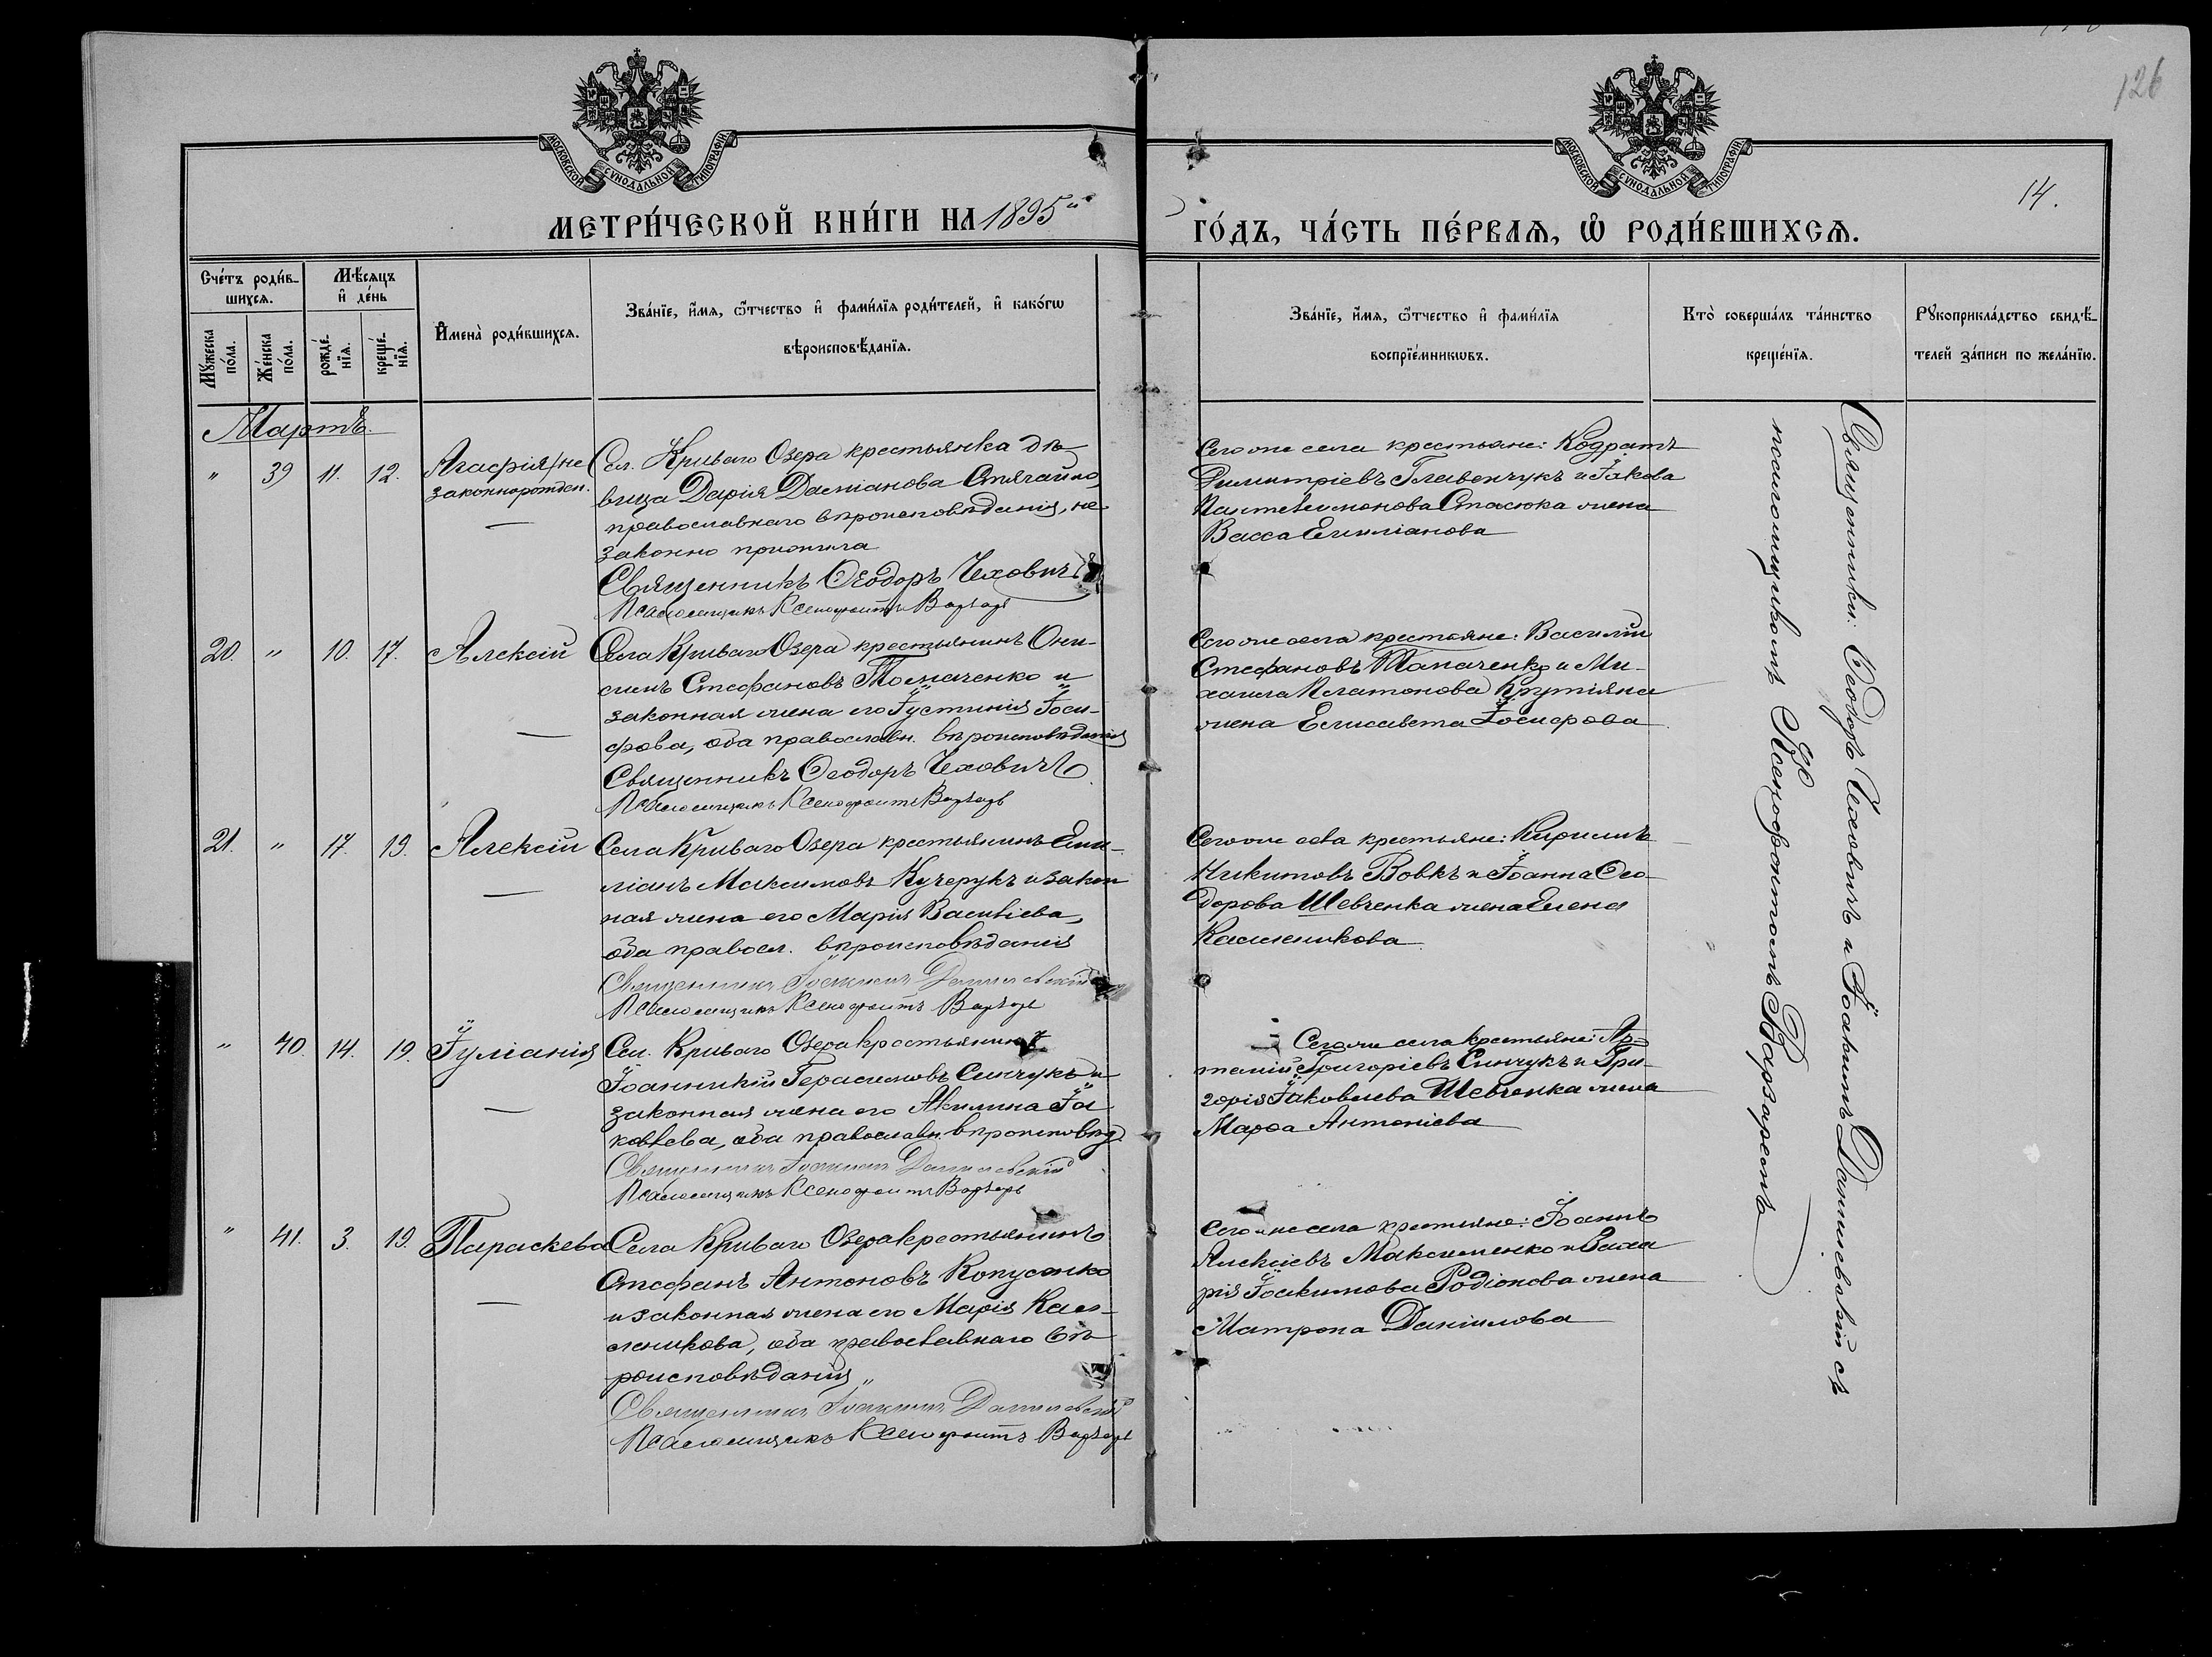 126
14.
МОСКОВСКОЙ СУНОДАЛЬНОЙ ТИПОГРАФІИ
МОСКОВСКОЙ СУНОДАЛЬНОЙ ТИПОГРАФІИ
МЕТРИ́ЧЕСКОЙ КНИ́ГИ НА 1895 й
ГО́ДЪ, ЧА́СТЬ ПЕ́РВАѦ, Ѡ҆ РОДИ́ВШИХСѦ.
Сче́тъ роди́в-
шихсѧ.
Мѣ́сѧцъ
и҆ де́нь
Мꙋ́жеска
по́ла.
Же́нска
по́ла.
рожде́-
нїѧ.
креще́-
нїѧ.
И҆мена̀ роди́вшихсѧ.
Зва́нїе, и҆́мѧ, ѻ҆́тчество и҆ фами́лїѧ роди́телей, и҆ како́гѡ
вѣроисповѣ́данїѧ.
Зва́нїе, и҆́мѧ, ѻ҆́тчество и҆ фами́лїѧ
воспрїе́мникѡвъ.
Кто̀ соверша́лъ та́инство
креще́нїѧ.
Рꙋкоприкла́дство свидѣ́-
телей за́писи по жела́нїю.
Мартъ.
" 39 11. 12. Агафія /не
законнорожден.
Сел. Криваго Озера крестьянка дѣ-
вица Дарія Даміанова Стягайло,
православнаго вѣроисповѣданія, не-
законно прижила
Священникъ Ѳеодоръ Чеховичъ
Псаломщикъ Ксенофонтъ Варзарь
Сего же села крестьяне: Кодратъ
Димитріевъ Главенчукъ и Іакова
Пантелеимонова Стасюка жена
Васса Емиліанова
20. " 10. 17. Алексій
Села Криваго Озера крестьянинъ Они-
симъ Стефановъ Толмаченко и
законная жена его Іустинія Іоси-
фова, оба православн. вѣроисповѣданія
Священникъ Ѳеодоръ Чеховичъ
Псаломщикъ Ксенофонтъ Варзарь
Сего же села крестьяне: Василій
Стефановъ и Ми-
хаила Платонова Крутіяна
жена Елисавета Іосифова
21. " 17. 19. Алексій
Села Криваго Озера крестьянинъ Еми-
ліанъ Максимовъ Кучерукъ и закон
ная жена его Марія Василіева,
оба правосл. вѣроисповѣданія
Священникъ Іоакимъ Данилевскій
Псаломщикъ Ксенофонтъ Варзарь
Сего же села крестьяне: Кириллъ
Никитовъ Вовкъ и Іоанна Ѳео-
дорова Шевченка жена Елена
Каллиникова
" 40. 14. 19. Іуліанія
Сел. Криваго Озера крестьянинъ
Іоанникій Герасимовъ Синчукъ и
законная жена его Акилина Іа
ковлева, оба православн. вѣроисповѣд.
Священникъ Іоакимъ Данилевскій
Псаломщикъ Ксенофонтъ Варзарь
Сего же села крестьяне: Ар-
темій Григоріевъ Синчукъ и Гри-
горія Іаковлева Шевченка жена
Марѳа Антоніева
" 41. 3. 19. Параскева
Села Криваго Озера крестьянинъ
Стефанъ Антоновъ Копусенко
и законная жена его Марія Кал-
леникова, оба православнаго вѣ-
роисповѣданія
Священникъ Іоакимъ Данилевскій
Псаломщикъ Ксенофонтъ Варзарь
Сего же села крестьяне: Іоаннъ
Алексіевъ Максименко и Заха
рія Іоакимова Родіонова жена
Матрона Даніилова
Священники: Ѳеодоръ Чеховичъ и Іоакимъ Данилевскій съ
псаломщикомъ Ксенофонтомъ Варзаремъ